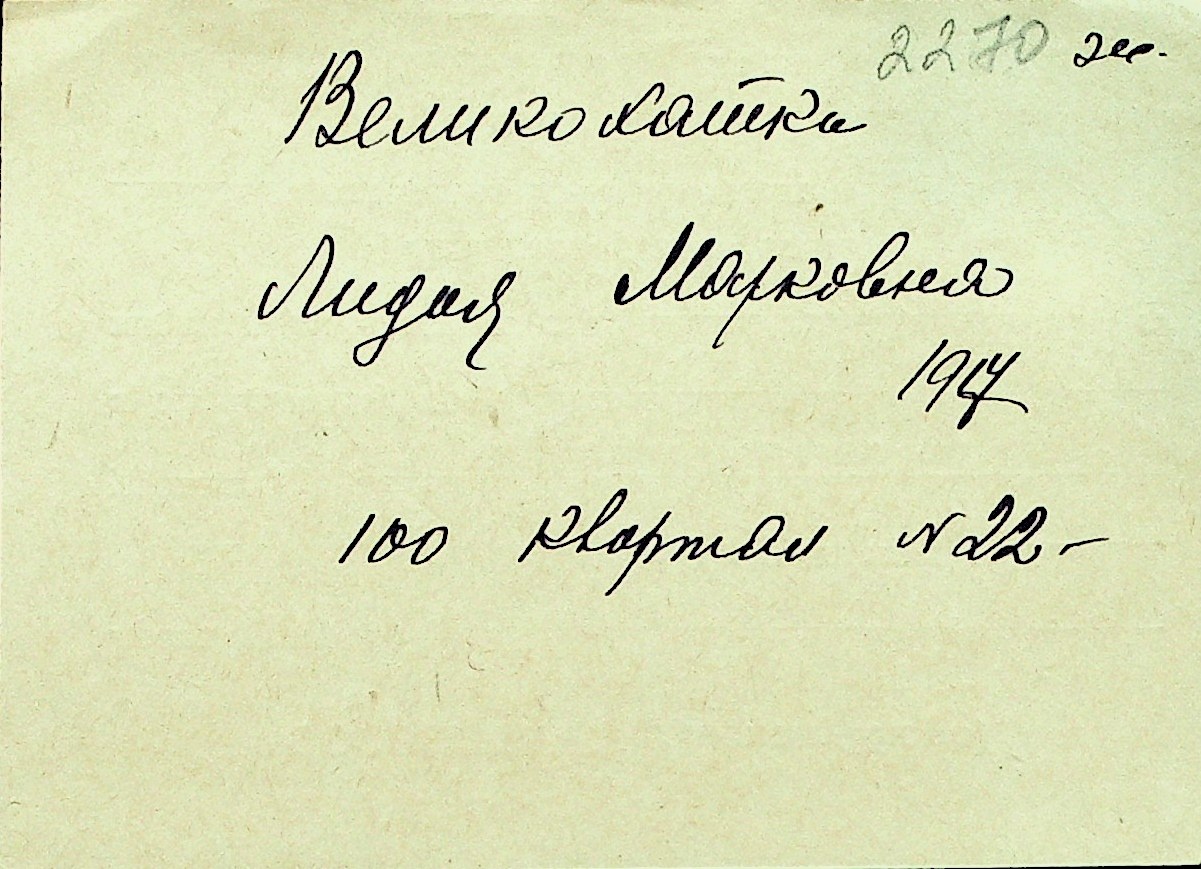 2270 эк.
Великохатка
Лидия Марковна
1917
100 квартал N 22-